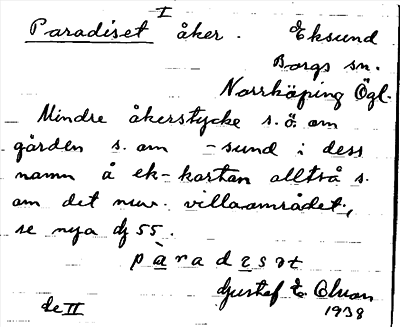 I
Paradiset åker. Eksund
Borgs sn.
Norrköping Ögl.
Mindre åkerstycke s.ö. om
gården s. om -sund i dess
namn å ek-kartan alltså s.
om det nuv. villaområdet,
se nya dj 55.
pàradesat
Gustaf E
de II 1938